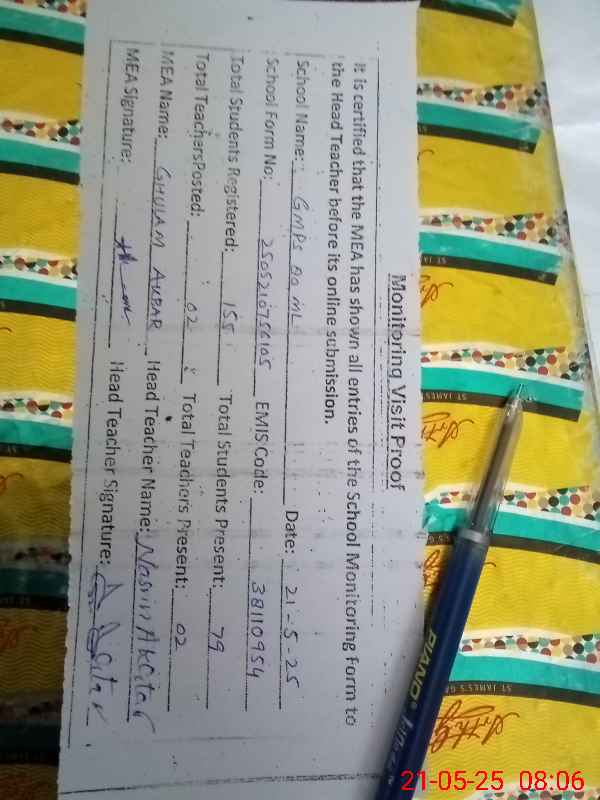 Monitoring Visit Proof
It is certified that the MEA has shown all entries of the School Monitoring Form to
the Head Teacher before its online submission.
School Name: GMPS 80 ML Date: 21-5-25
School Form No: 2505210756105 EMIS Code: 38110954
Total Students Registered: 155 Total Students Present: 79
Total TeachersPosted: 02 Total Teachers Present: 02
MEA Name: GHULAM AKBAR Head Teacher Name: Nasrin Akhtar
MEA Signature: Head Teacher Signature:
PIANO
ST JAMES'S GA
21-05-25 08:06